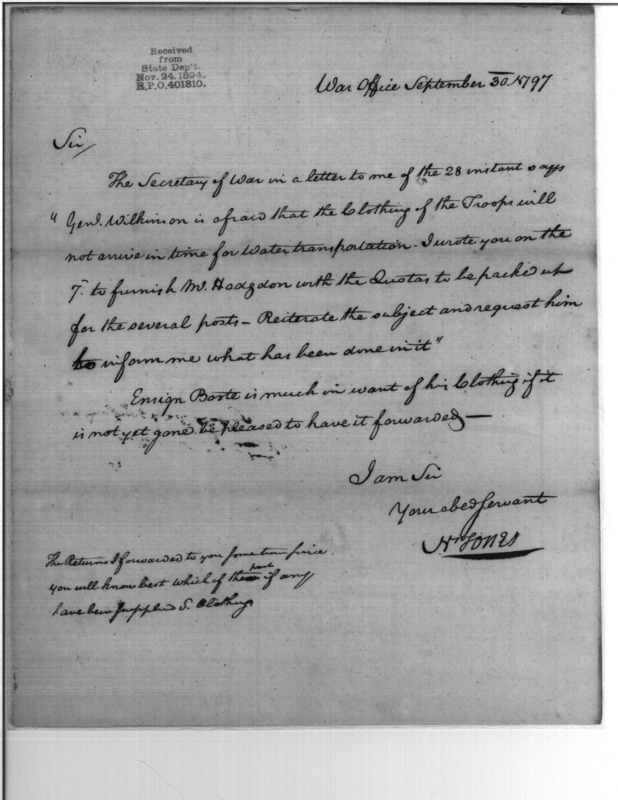 Received
from
State Dep't.
Nov. 24. 1894.
R.P.O. 401310.
War Office September 30. 1797
Sir/
The Secretary of War in a letter to me of the 28 instant says
"Genl. Wilkinson is afraid that the Clothing of the Troops will
not arrive in time for Water transportation. I wrote you on the
7. to furnish Mr. Hodgdon with the Quotas to be packed up
for the several posts – Reiterate the subject and request him
to inform me what has been done in it"
Ensign Bowte is much in want of his Clothing if it
is not yet gone be pleased to have it forwarded —
I am Sir
Your obed Servant
Wm JONES
The Returns I forwarded to you some time since
you will know best which of the post if any
have been supplied S. Clothing